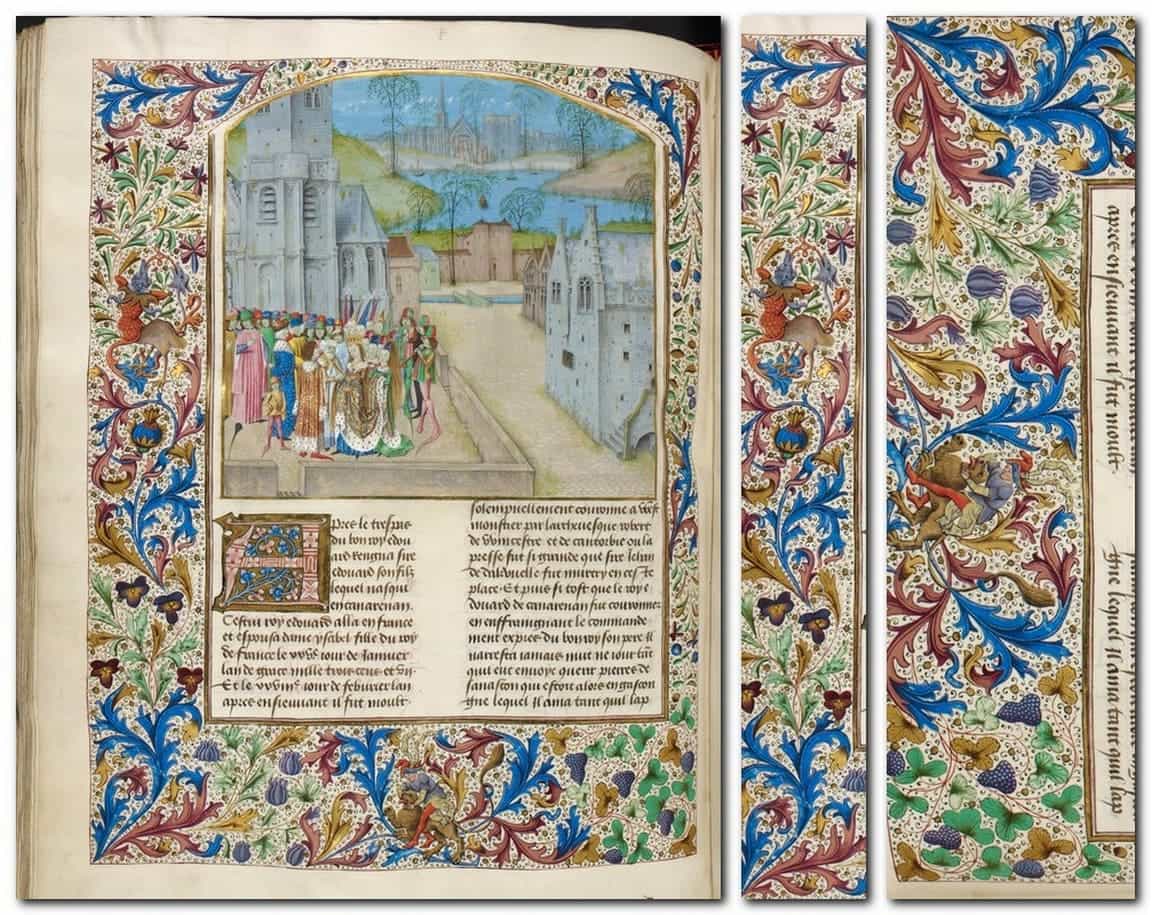 Apres le trespas
du bon roy edou
ard rengna sire
edouard son filz
lequel nasqui
en canarenan.
Cestui roy edouard alla en france
et espousa dame ysabel fille du roy
de france le
lan de grace mille trois cens et vii
Et le iour de feburier lan
apres ensieuuant il fut moult
solempnellement couronne a
monstier par larcheuesque robert
de Vincestre et de cantorbie ou la
presse fut si grande que sire Iehan
de fut murtry en ceste
place. Et puis si tost que le roy e
douard de canarenan fut couronne
en enffraingnant le commande
ment expres du bon roy son pere Il
narresta iamais nuit ne iour tant
quil eut enuoye querir pierres de
Gauaston qui estoit alors en gascon
gne lequel Il ama tant quil lap
apres ensieuuant il fut moult
gne lequel Il ama tant quil lap